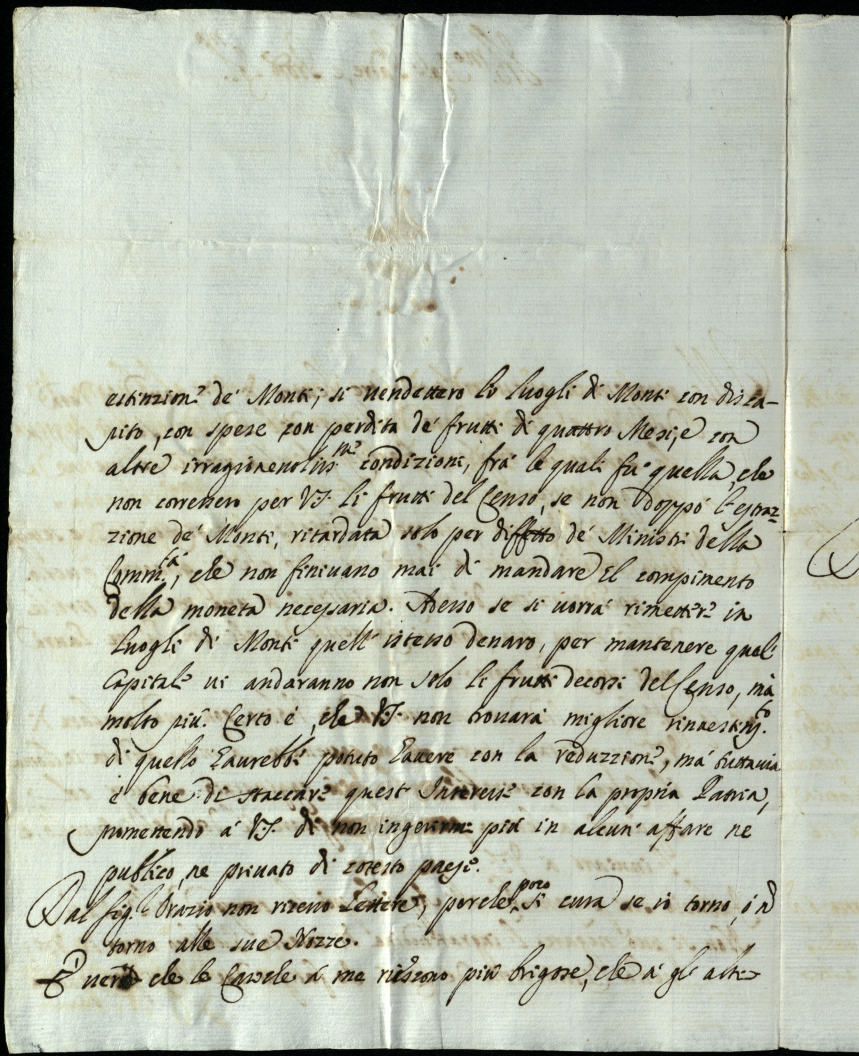 estinzione de' Monti; si vendettero li luoghi di Monti con disca-
pito, con spese con perdita de' frutti di quattro Mesi, e con
altre irragionevoliss.me condizioni, frà le quali fù quella, che
non corressero per VS. li frutti del Censo, se non doppò l'estraz-
zione de' Monti, ritardata solo per diffetto de' Ministri della
Comm.tà, che non finivano mai di mandare il compimento
della moneta necessaria. Adesso se si vorrà rimettere in
luoghi di Monti quell' istesso denaro, per mantenere quel
Capitale vi andaranno non solo li frutti decorsi del Censo, mà
molto più. Certo è, che VS. non trovarà migliore rinvestim.to
di quello haurebbe potuto havere con la reduzzione, mà tuttavia
è bene di staccare quest' Interesse con la propria Patria,
promettendo à VS. di non ingerirme più in alcun' affare ne
publico, ne privato di cotesto paese.
Dal fig.lo Orazio non ricevo lettere, perche poco si cura se io torno, ò nò
torno alle sue Nozze.
È vero che le Cause à me riescono più brigose, che à gli altri